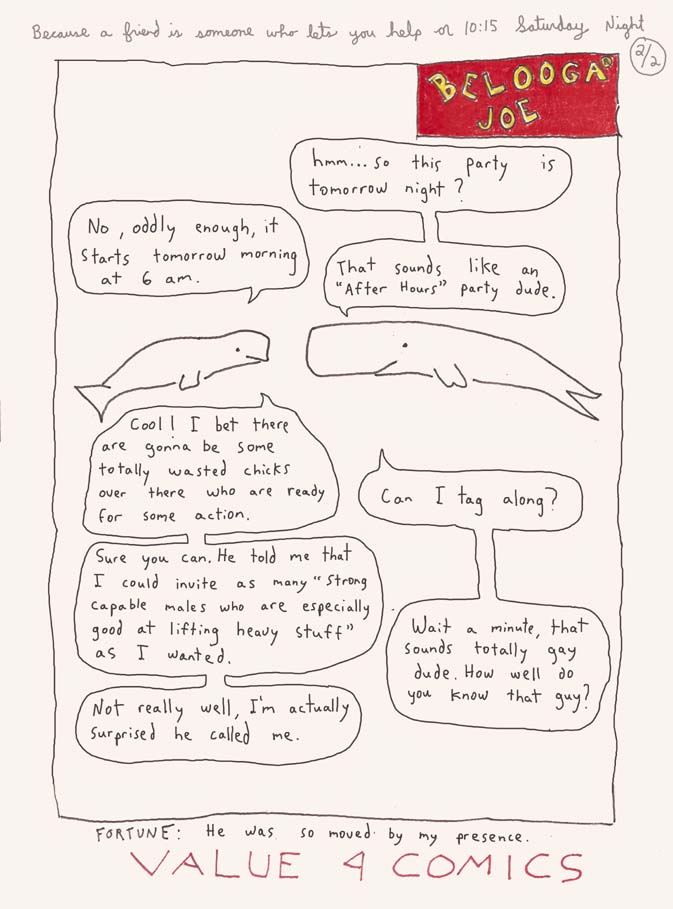 Because a friend is someone who lets you help on 10:15 Saturday Night
2/2
BELOOGA
JOE
hmm... so this party is
tomorrow night?
No, oddly enough, it
starts tomorrow morning
at 6 am.
That sounds like an
"After Hours" party dude.
Cool! I bet there
are gonna be some
totally wasted chicks
over there who are ready
for some action.
Can I tag along?
Sure you can. He told me that
I could invite as many "strong
capable males who are especially
good at lifting heavy stuff"
as I wanted.
Wait a minute, that
sounds totally gay
dude. How well do
you know that guy?
Not really well, I'm actually
surprised he called me.
FORTUNE: He was so moved by my presence.
VALUE 4 COMICS